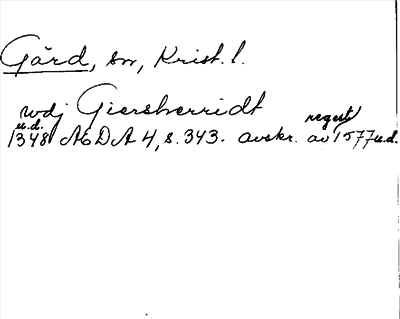 Gärd, sn, Krist. l.
wdj Giersherridt
u.d. regest
1348 ÆDA 4, s. 343. avskr. av 1577 u.d.